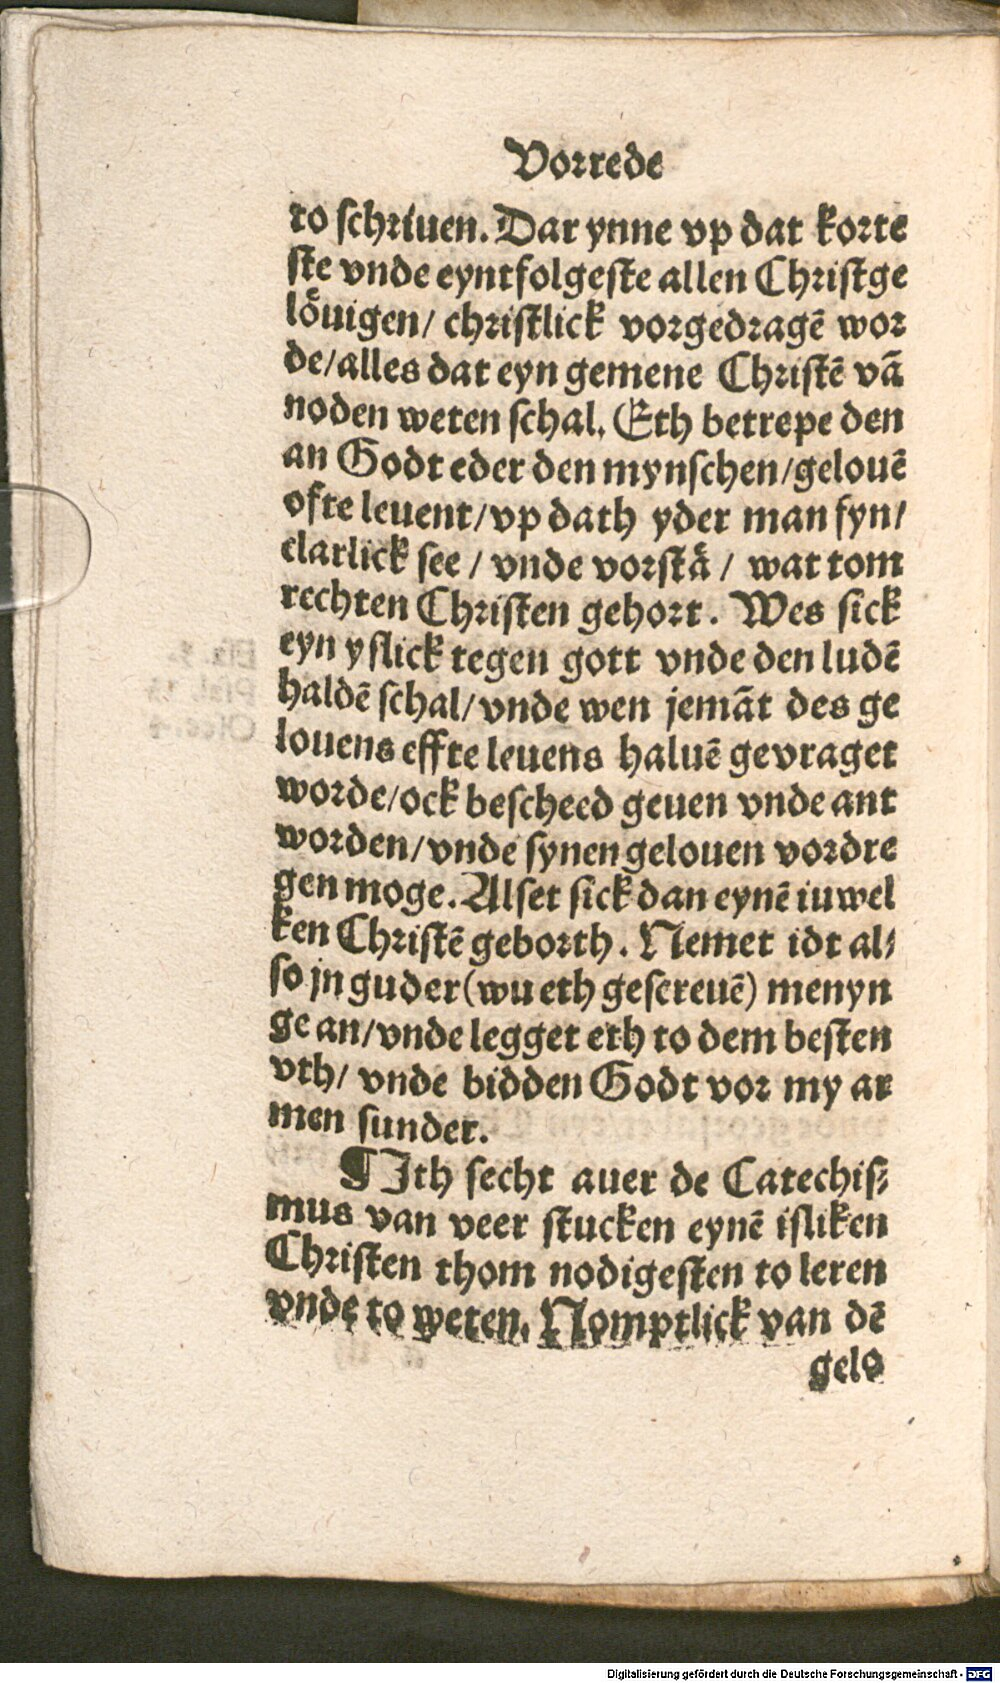 Vorrede
to schriuen. Dar ynne vp dat korte
ste vnde eyntfolgeste allen Christge
loͤuigen/ christlick vorgedragē wor
de/alles dat eyn gemene Christē vā
noden weten schal. Eth betrepe den
an Godt eder den mynschen/gelouē
ofte leuent/vp dath yder man fyn/
clarlick see / vnde vorstaͤ / wat tom
rechten Christen gehort. Wes sick
eyn yslick tegen gott vnde den ludē
haldē schal/vnde wen jemāt des ge
louens effte leuens haluē gevraget
worde/ock bescheed geuen vnde ant
worden/vnde synen gelouen vordre
gen moge. Alset sick dan eynē iuwel
ken Christē geborth. Nemet idt al⸗
so jn guder (wu eth gescreuē) menyn
ge an/vnde legget eth to dem besten
vth/ vnde bidden Godt vor my ar
men sunder.
¶ Ith secht auer de Catechis⸗
mus van veer stucken eynē isliken
Christen thom nodigesten to leren
vnde to weten. Nomptlick van dē
gelo
Digitalisierung gefördert durch die Deutsche Forschungsgemeinschaft - DFG